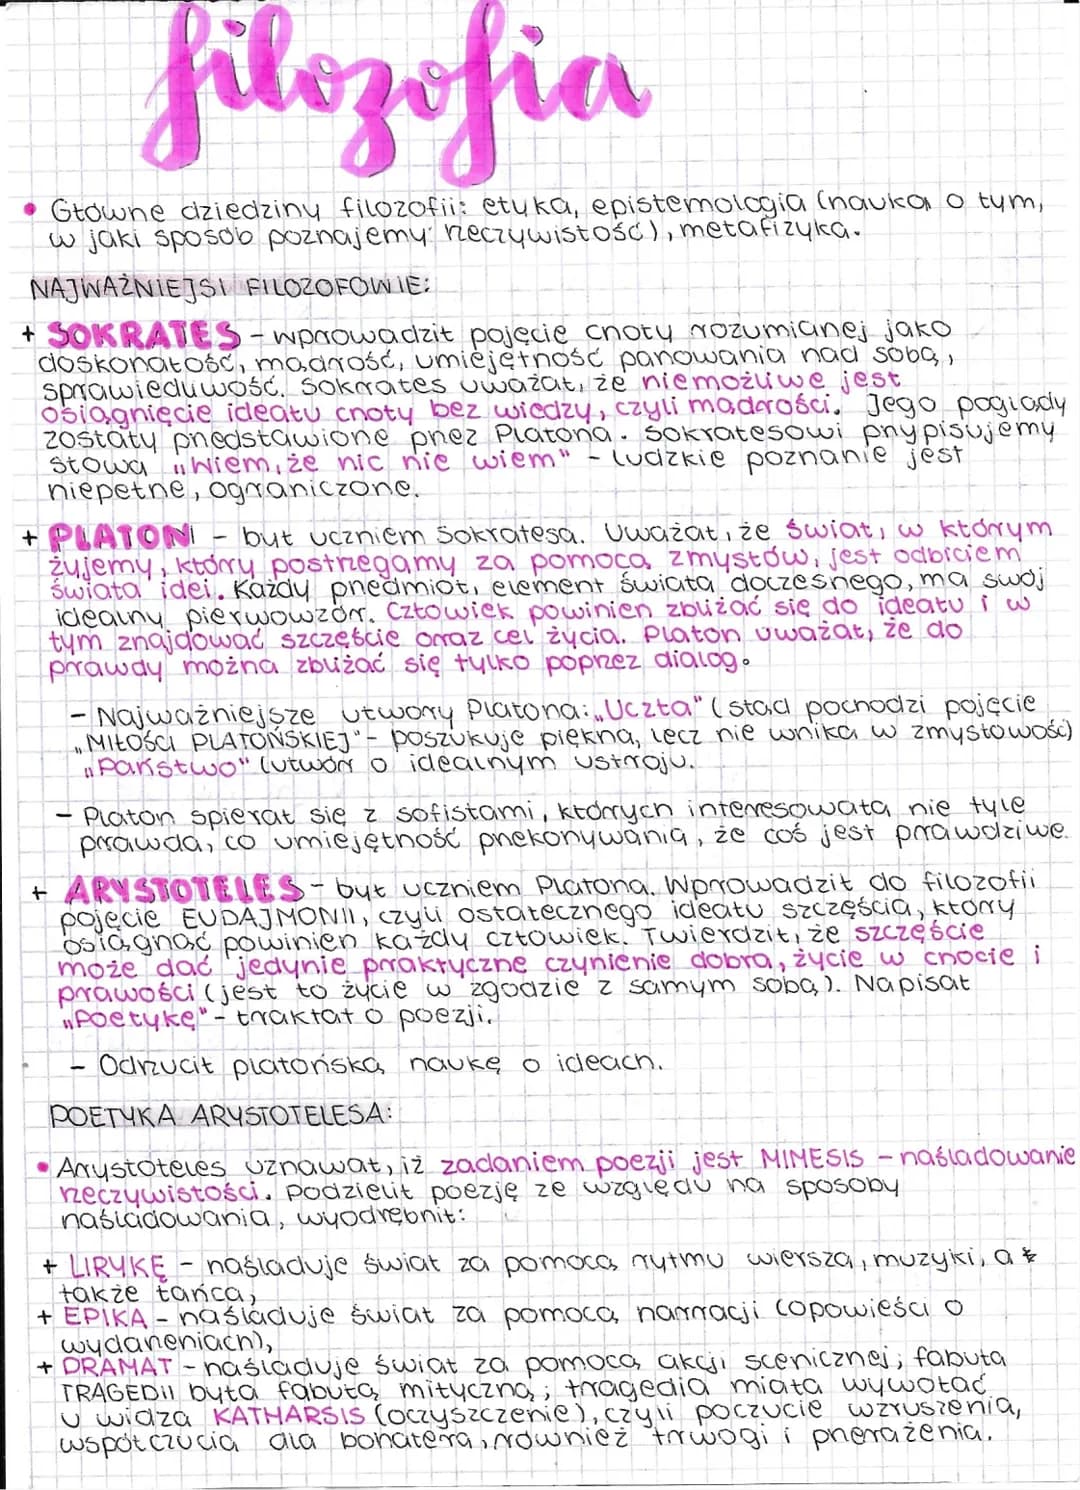 filozofia
• Główne dziedziny filozofii: etyka, epistemologia (nauka o tym,
w jaki sposób poznajemy rzeczywistość), metafizyka.
NAJWAŻNIEJSI FILOZOFOWIE:
+ SOKRATES - wprowadził pojęcie cnoty rozumianej jako
doskonałość, mądrość, umiejętność panowania nad sobą,
sprawiedliwość. Sokrates uważał, że niemożliwe jest
osiągnięcie ideału cnoty bez wiedzy, czyli mądrości. Jego poglądy
zostały przedstawione przez Platona. Sokratesowi przypisujemy
słowa „Wiem, że nic nie wiem" - ludzkie poznanie jest
niepełne, ograniczone.
+ PLATON - był uczniem Sokratesa. Uważał, że świat, w którym
żyjemy, który postrzegamy za pomocą zmysłów, jest odbiciem
świata idei. Każdy przedmiot, element świata doczesnego, ma swój
idealny pierwowzór. Człowiek powinien zbliżać się do ideału i w
tym znajdować szczęście oraz cel życia. Platon uważał, że do
prawdy można zbliżać się tylko poprzez dialog.
- Najważniejsze utwory Platona: „Uczta" (stąd pochodzi pojęcie
„MIŁOŚCI PLATOŃSKIEJ" - poszukuje piękna, lecz nie wnika w zmysłowość)
„Państwo" (utwór o idealnym ustroju.
- Platon spierał się z sofistami, których interesowała nie tyle
prawda, co umiejętność przekonywania, że coś jest prawdziwe.
+ ARYSTOTELES - był uczniem Platona. Wprowadził do filozofii
pojęcie EUDAJMONII, czyli ostatecznego ideału szczęścia, który
osiągnąć powinien każdy człowiek. Twierdził, że szczęście
może dać jedynie praktyczne czynienie dobra, życie w cnocie i
prawości (jest to życie w zgodzie z samym sobą). Napisał
„Poetykę" - traktat o poezji.
- Odrzucił platońską naukę o ideach.
POETYKA ARYSTOTELESA:
• Arystoteles uznawał, iż zadaniem poezji jest MIMESIS - naśladowanie
rzeczywistości. Podzielił poezję ze względu na sposoby
naśladowania, wyodrębnił:
+ LIRYKĘ - naśladuje świat za pomocą rytmu wiersza, muzyki, a
także tańca,
+ EPIKA - naśladuje świat za pomocą narracji (opowieści o
wydarzeniach),
+ DRAMAT - naśladuje świat za pomocą akcji scenicznej; fabuła
TRAGEDII była fabułą mityczną; tragedia miała wywołać
u widza KATHARSIS (oczyszczenie), czyli poczucie wzruszenia,
współczucia dla bohatera, również trwogi i przerażenia.